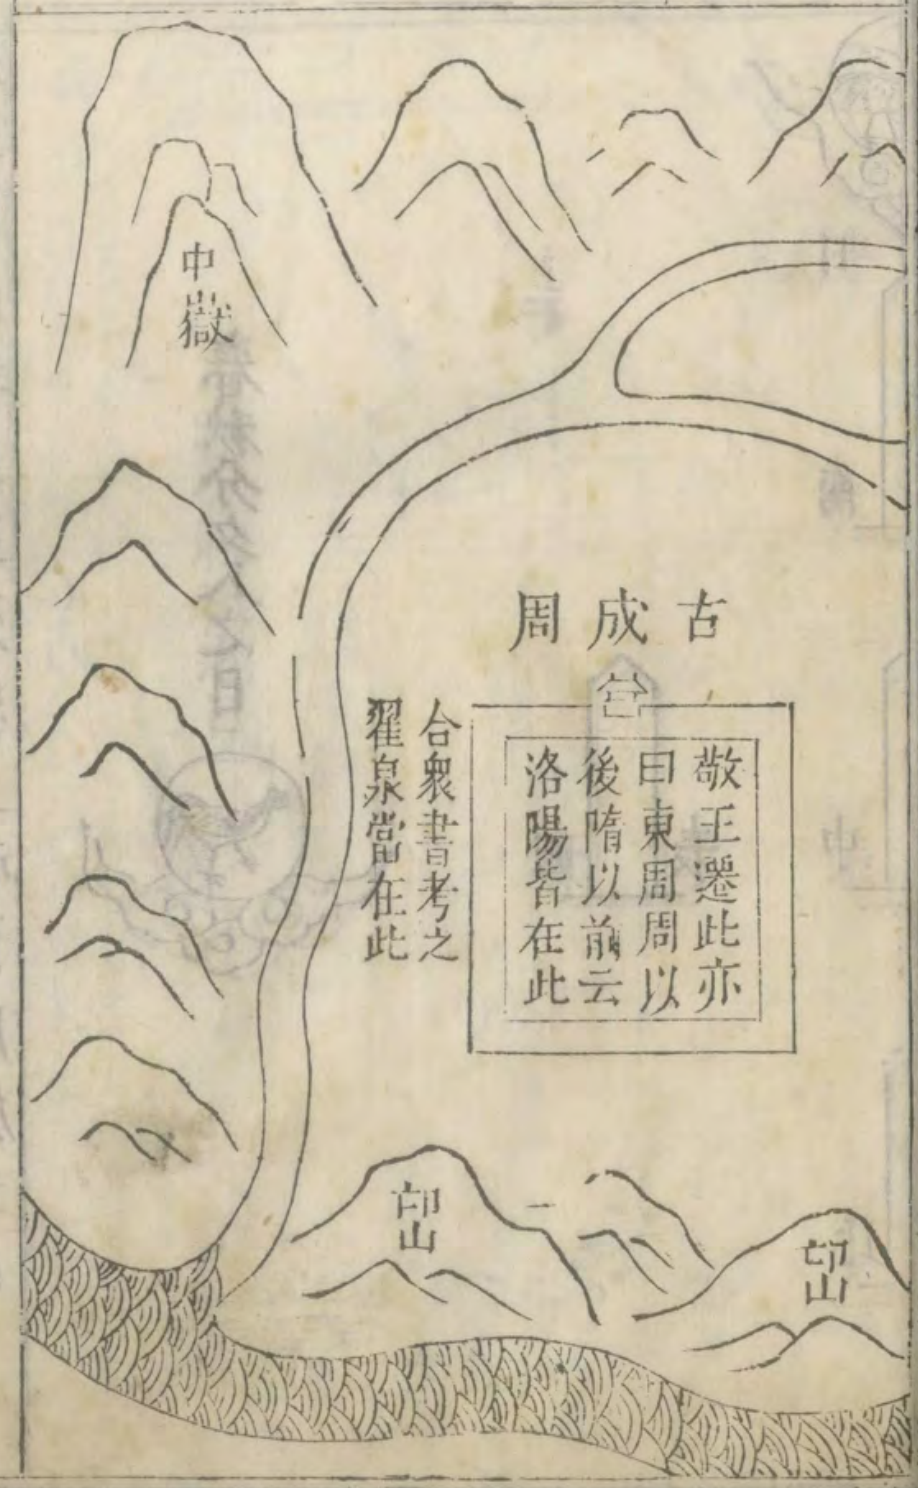 中嶽
古成周
敬王遷此亦
曰東周周以
後隋以前云
洛陽皆在此
合衆書考之
翟泉當在此
邙山
邙山